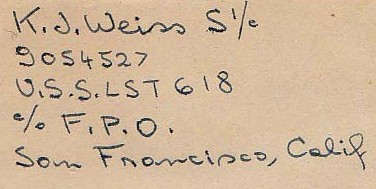 K.J. Weiss S1/c
9054527
U.S.S. LST 618
c/o F.P.O.
San Francisco, Calif